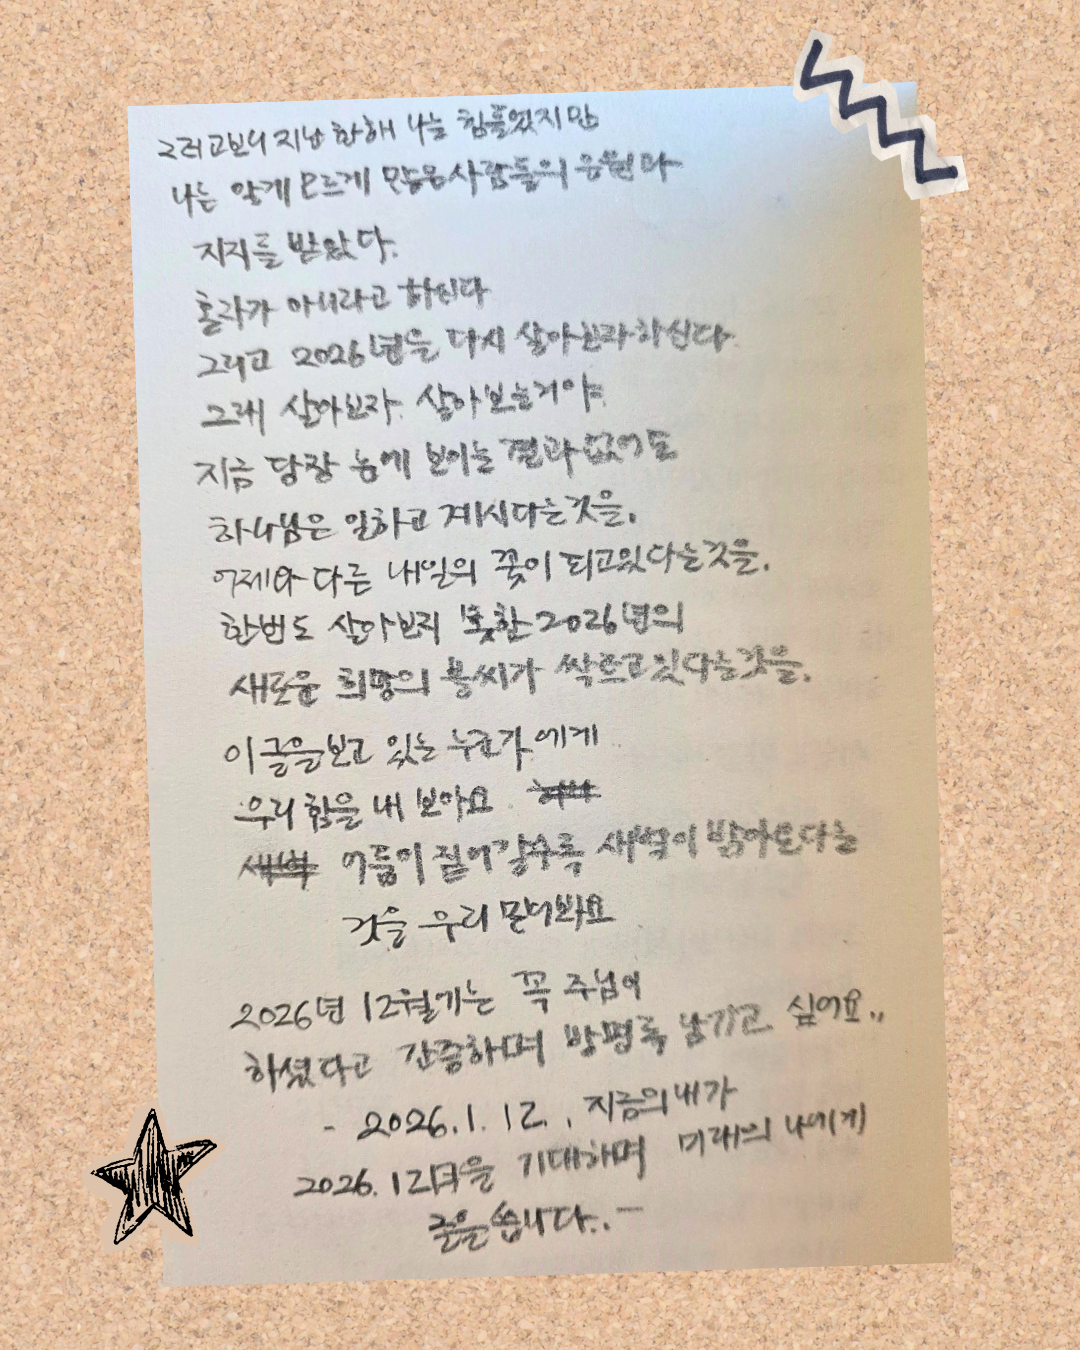 그러고보니 지난 한해 나는 힘들었지만
나는 알게 모르게 많은 사람들의 응원과
지지를 받았다.
혼자가 아니라고 하신다
그리고 2026년을 다시 살아보라 하신다
그래 살아보자. 살아보는거야
지금 당장 눈에 보이는 결과 없어도
하나님은 일하고 계시다는것을.
어제와 다른 내일의 꽃이 피고있다는것을.
한번도 살아보지 못한 2026년의
새로운 희망의 불씨가 싹트고있다는것을.
이 글을 보고 있는 누군가에게
우리 힘을 내 보아요
어둠이 짙어갈수록 새벽이 밝아온다는
것을 우리 믿어봐요
2026년 12월기는 꼭 주님이
하셨다고 간증하며 방명록 남기고 싶어요..
- 2026.1.12., 지금의 내가
2026.12월을 기대하며 미래의 나에게
글을 씁니다..-